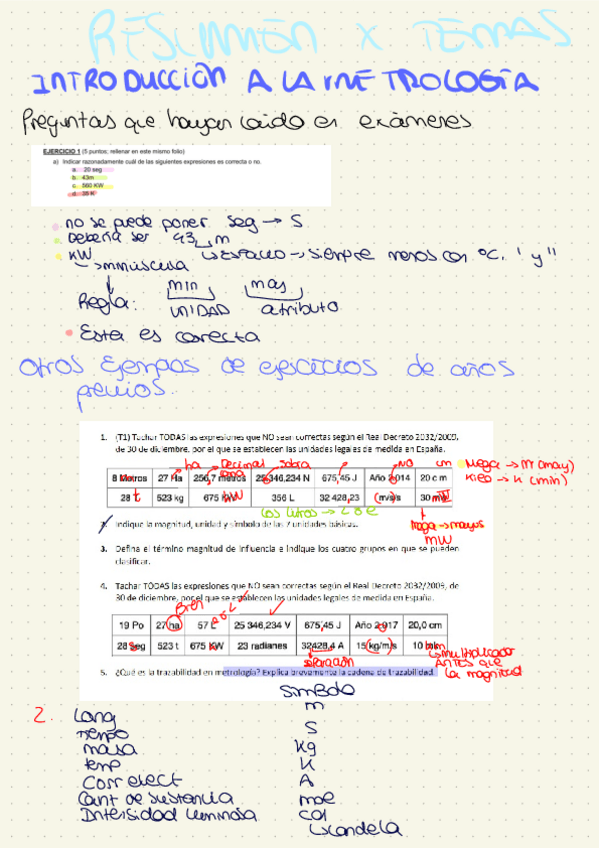 RESUMEN X TEMAS
INTRODUCCIÓN A LA METROLOGÍA
Preguntas que hayan caido en exámenes
EJERCICIO 1 (5 puntos; rellenar en este mismo folio)
a) Indicar razonadamente cuál de las siguientes expresiones es correcta o no.
a. 20 seg
b. 43m
c. 560 KW
d. 35 K
no se puede poner seg → s
Debería ser 43 m
↳ Espacio → siempre menos con °C, ' y "
KW
↳ minúscula
Regla: min UNIDAD may atributo
Esta es correcta
Otros Ejempos de ejercicios de años
previos.
1. (T1) Tachar TODAS las expresiones que NO sean correctas según el Real Decreto 2032/2009,
de 30 de diciembre, por el que se establecen las unidades legales de medida en España.
ha Decimal sobra NO cm Mega → M (may)
8 Metros 27 Ha 256,7 metros 25 346,234 N 675,45 J Año 2014 20 cm
Kilo → k (min)
28 t 523 kg 675 kW 356 L 32 428,23 (m/s)/s 30 mW
Los litros → L o l
Mega → mayus
MW
2. Indique la magnitud, unidad y símbolo de las 7 unidades básicas.
3. Defina el término magnitud de influencia e indique los cuatro grupos en que se pueden
clasificar.
4. Tachar TODAS las expresiones que NO sean correctas según el Real Decreto 2032/2009, de
30 de diciembre, por el que se establecen las unidades legales de medida en España.
Bien l o L
19 Po 27 ha 57 L 25 346,234 V 675,45 J Año 2 017 20,0 cm
28 Seg 523 t 675 KW 23 radianes 32428,4 A 15 (kg/m)/s 10
separación
↳ multiplicador
ANTES que
la magnitud
5. ¿Qué es la trazabilidad en metrología? Explica brevemente la cadena de trazabilidad.
Simbolo
2. Long m
Tiempo s
masa kg
temp K
Corr elect A
Cant de sustancia mol
Intensidad luminosa cd
↳ candela